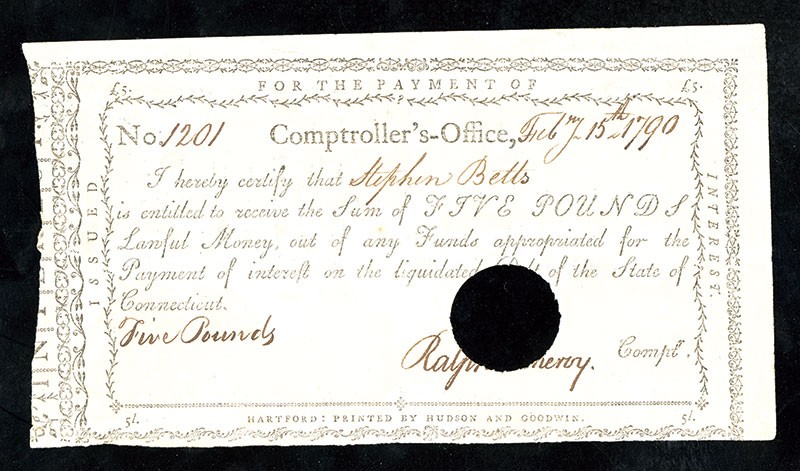 FOR THE PAYMENT OF
£5. £5.
No. 1201 Comptroller's-Office, Feb'ry 15th 1790
I hereby certify that Stephen Betts
is entitled to receive the Sum of FIVE POUNDS
Lawful Money, out of any Funds appropriated for the
Payment of interest on the liquidated of the State of
Connecticut.
Five Pounds
Ralph Compt'r.
ISSUED
INTEREST.
5l. HARTFORD: PRINTED BY HUDSON AND GOODWIN. 5l.